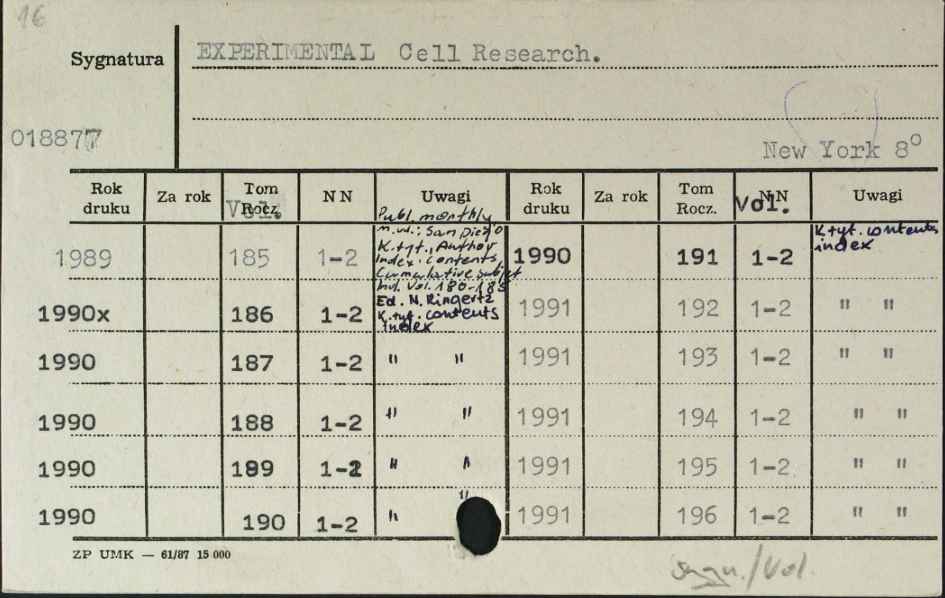 16
Sygnatura
EXPERIMENTAL Cell Research.
018877
New York 8°
Rok druku Za rok Tom Rocz. Vol. NN Uwagi Rok druku Za rok Tom Rocz. NN Vol. Uwagi
1989 185 1-2 Publ. monthly
m. wd.: San Diego
K. tyt., Author
Index. contents,
Cumulative subject
Ind. Vol. 180-185
1990 191 1-2 K. tyt. contents
index
1990x 186 1-2 Ed. N. Ringertz
K. tyt. contents
index
1991 192 1-2 " "
1990 187 1-2 " " 1991 193 1-2 " "
1990 188 1-2 " " 1991 194 1-2 " "
1990 189 1-2 " " 1991 195 1-2 " "
1990 190 1-2 " " 1991 196 1-2 " "
ZP UMK — 61/87 15 000
sygn./Vol.